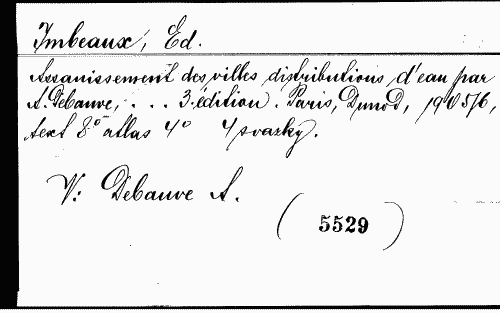 Imbeaux, Ed.
Assanissement des villes distributions d'eau par
A. Debauve, . . . 3. édition. Paris, Dunod, 1905/6,
text 8° atlas 4° 4 svazky.
V: Debauve A.
(5529)